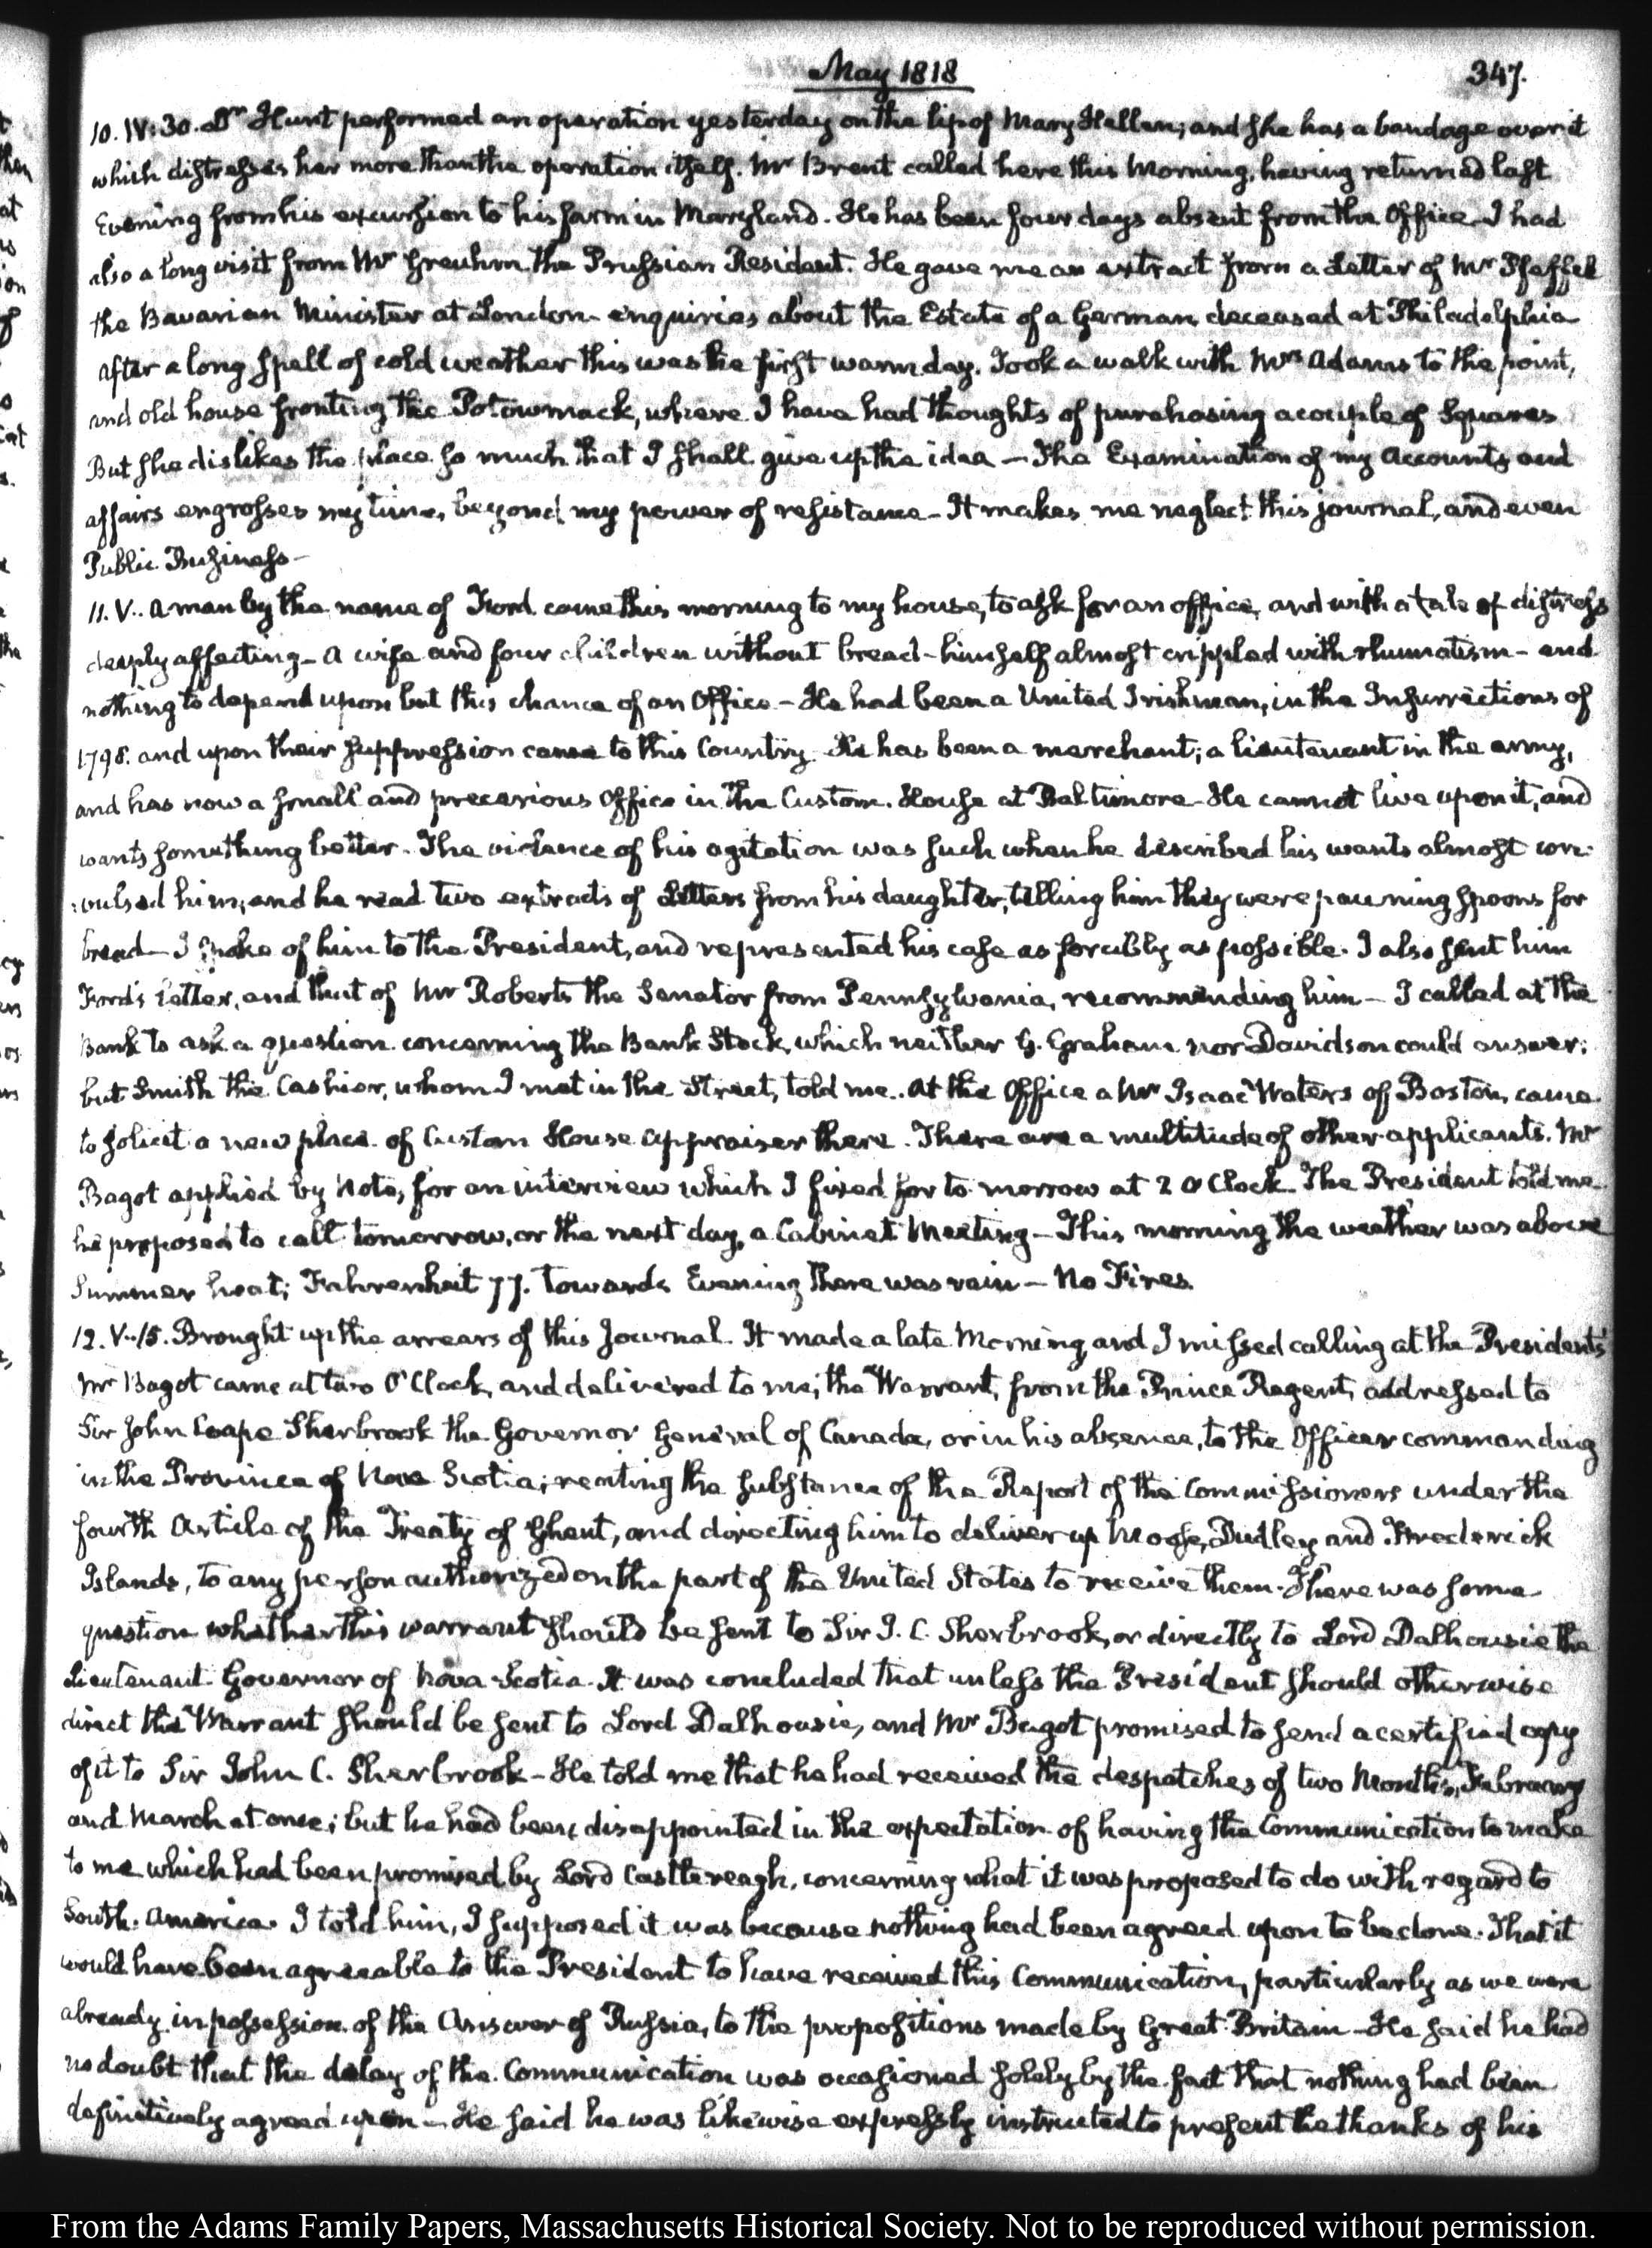 May 1818
347.
10. IV:30. Dr Hunt performed an operation yesterday on the lip of Mary Hellen; and she has a bandage over it
which distresses her more than the operation itself. Mr Brent called here this Morning, having returned last
Evening from his excursion to his farm in Maryland. He has been four days absent from the Office. I had
also a long visit from Mr Greuhm the Prussian Resident. He gave me an extract from a Letter of Mr Pfeffel
the Bavarian Minister at London enquiries about the Estate of a German deceased at Philadelphia
After a long spell of cold weather this was the first warm day. Took a walk with Mrs Adams to the point,
and old house fronting the Potowmack, where I have had thoughts of purchasing a couple of Squares
But she dislikes the place so much that I shall give up the idea — The Examination of my Accounts and
affairs engrosses my time, beyond my power of resistance — It makes me neglect this journal, and even
Public Business —
11. V.. A man by the name of Ford came this morning to my house, to ask for an office, and with a tale of distress
deeply affecting — A wife and four children without bread — himself almost crippled with rhumatism — and
nothing to depend upon but this chance of an Office — He had been a United Irishman, in the Insurrections of
1798. and upon their suppression came to this Country. He has been a merchant; a lieutenant in the army,
and has now a small and precarious Office in the Custom-House at Baltimore. He cannot live upon it, and
wants something better. The violence of his agitation was such when he described his wants almost con-
:vulsed him; and he read two extracts of Letters from his daughter, telling him they were pawning spoons for
bread — I spoke of him to the President, and represented his case as forcibly as possible. I also sent him
Ford's Letter, and that of Mr Roberts the Senator from Pennsylvania, recommending him — I called at the
Bank to ask a question concerning the Bank Stock, which neither G. Graham nor Davidson could answer;
but Smith the Cashier, whom I met in the Street, told me. At the Office a Mr Isaac Waters of Boston, came
to solicit a new place of Custom House Appraiser there. There are a multitude of other applicants. Mr
Bagot applied by Note, for an interview which I fixed for to-morrow at 2 O'Clock. The President told me
he proposed to call tomorrow, or the next day, a Cabinet Meeting — This morning the weather was above
Summer heat; Fahrenheit 77. towards Evening there was rain — No Fires.
12. V..15. Brought up the arrears of this Journal. It made a late Morning and I missed calling at the Presidents'
Mr Bagot came at two O'Clock, and delivered to me, the Warrant, from the Prince Regent, addressed to
Sir John Coape Sherbrook the Governor General of Canada, or in his absence, to the Officer commanding
in the Province of Nova Scotia; reciting the substance of the Report of the Commissioners under the
fourth Article of the Treaty of Ghent, and directing him to deliver up Moose, Dudley and Frederick
Islands, to any person authorized on the part of the United States to receive them. There was some
question whether this warrant should be sent to Sir J. C. Sherbrook, or directly to Lord Dalhousie the
Lieutenant Governor of Nova-Scotia. It was concluded that unless the President should otherwise
direct the Warrant should be sent to Lord Dalhousie, and Mr Bagot promised to send a certified copy
of it to Sir John C. Sherbrook — He told me that he had received the despatches of two Months, February
and March at once; but he had been disappointed in the expectation of having the Communication to make
to me which had been promised by Lord Castlereagh, concerning what it was proposed to do with regard to
South-America. I told him, I supposed it was because nothing had been agreed upon to be done. That it
would have been agreeable to the President to have received this Communication, particularly as we were
already in possession of the Answer of Russia, to the propositions made by Great-Britain — He said he had
no doubt that the delay of the Communication was occasioned solely by the fact that nothing had been
definitively agreed upon — He said he was likewise expressly instructed to present the thanks of his
From the Adams Family Papers, Massachusetts Historical Society. Not to be reproduced without permission.